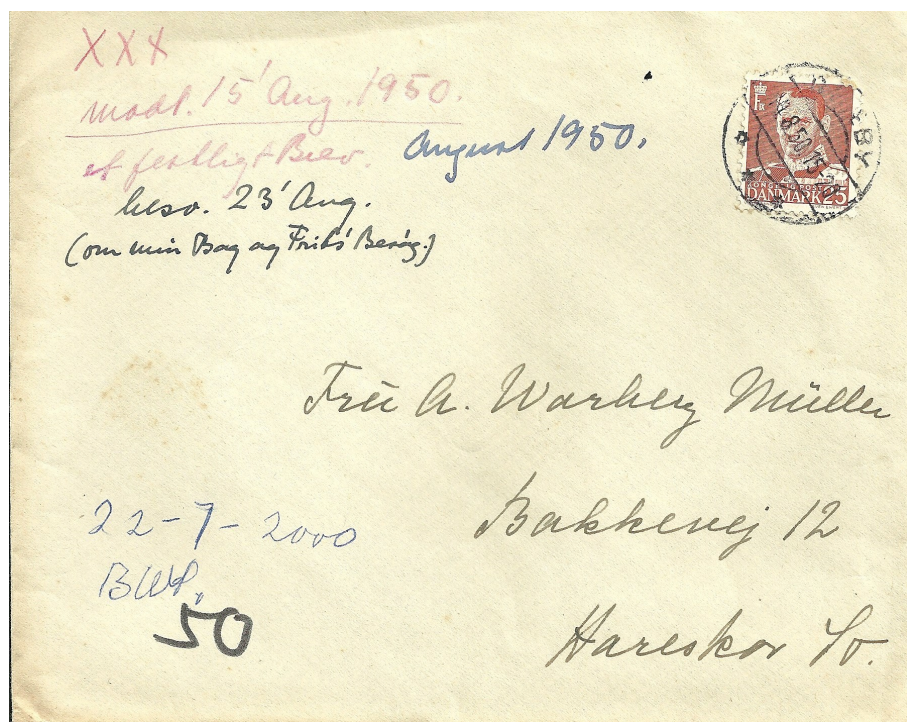 XXX
modt. 15' Aug. 1950.
et festligt Brev.
August 1950.
besv. 23' Aug.
(om min Bog og Frits' Besøg.)
14.8.50.15-
BY
DANMARK 25
Fru A. Warberg Müller
Bakkevej 12
Hareskov St.
22-7-2000
BWP.
50